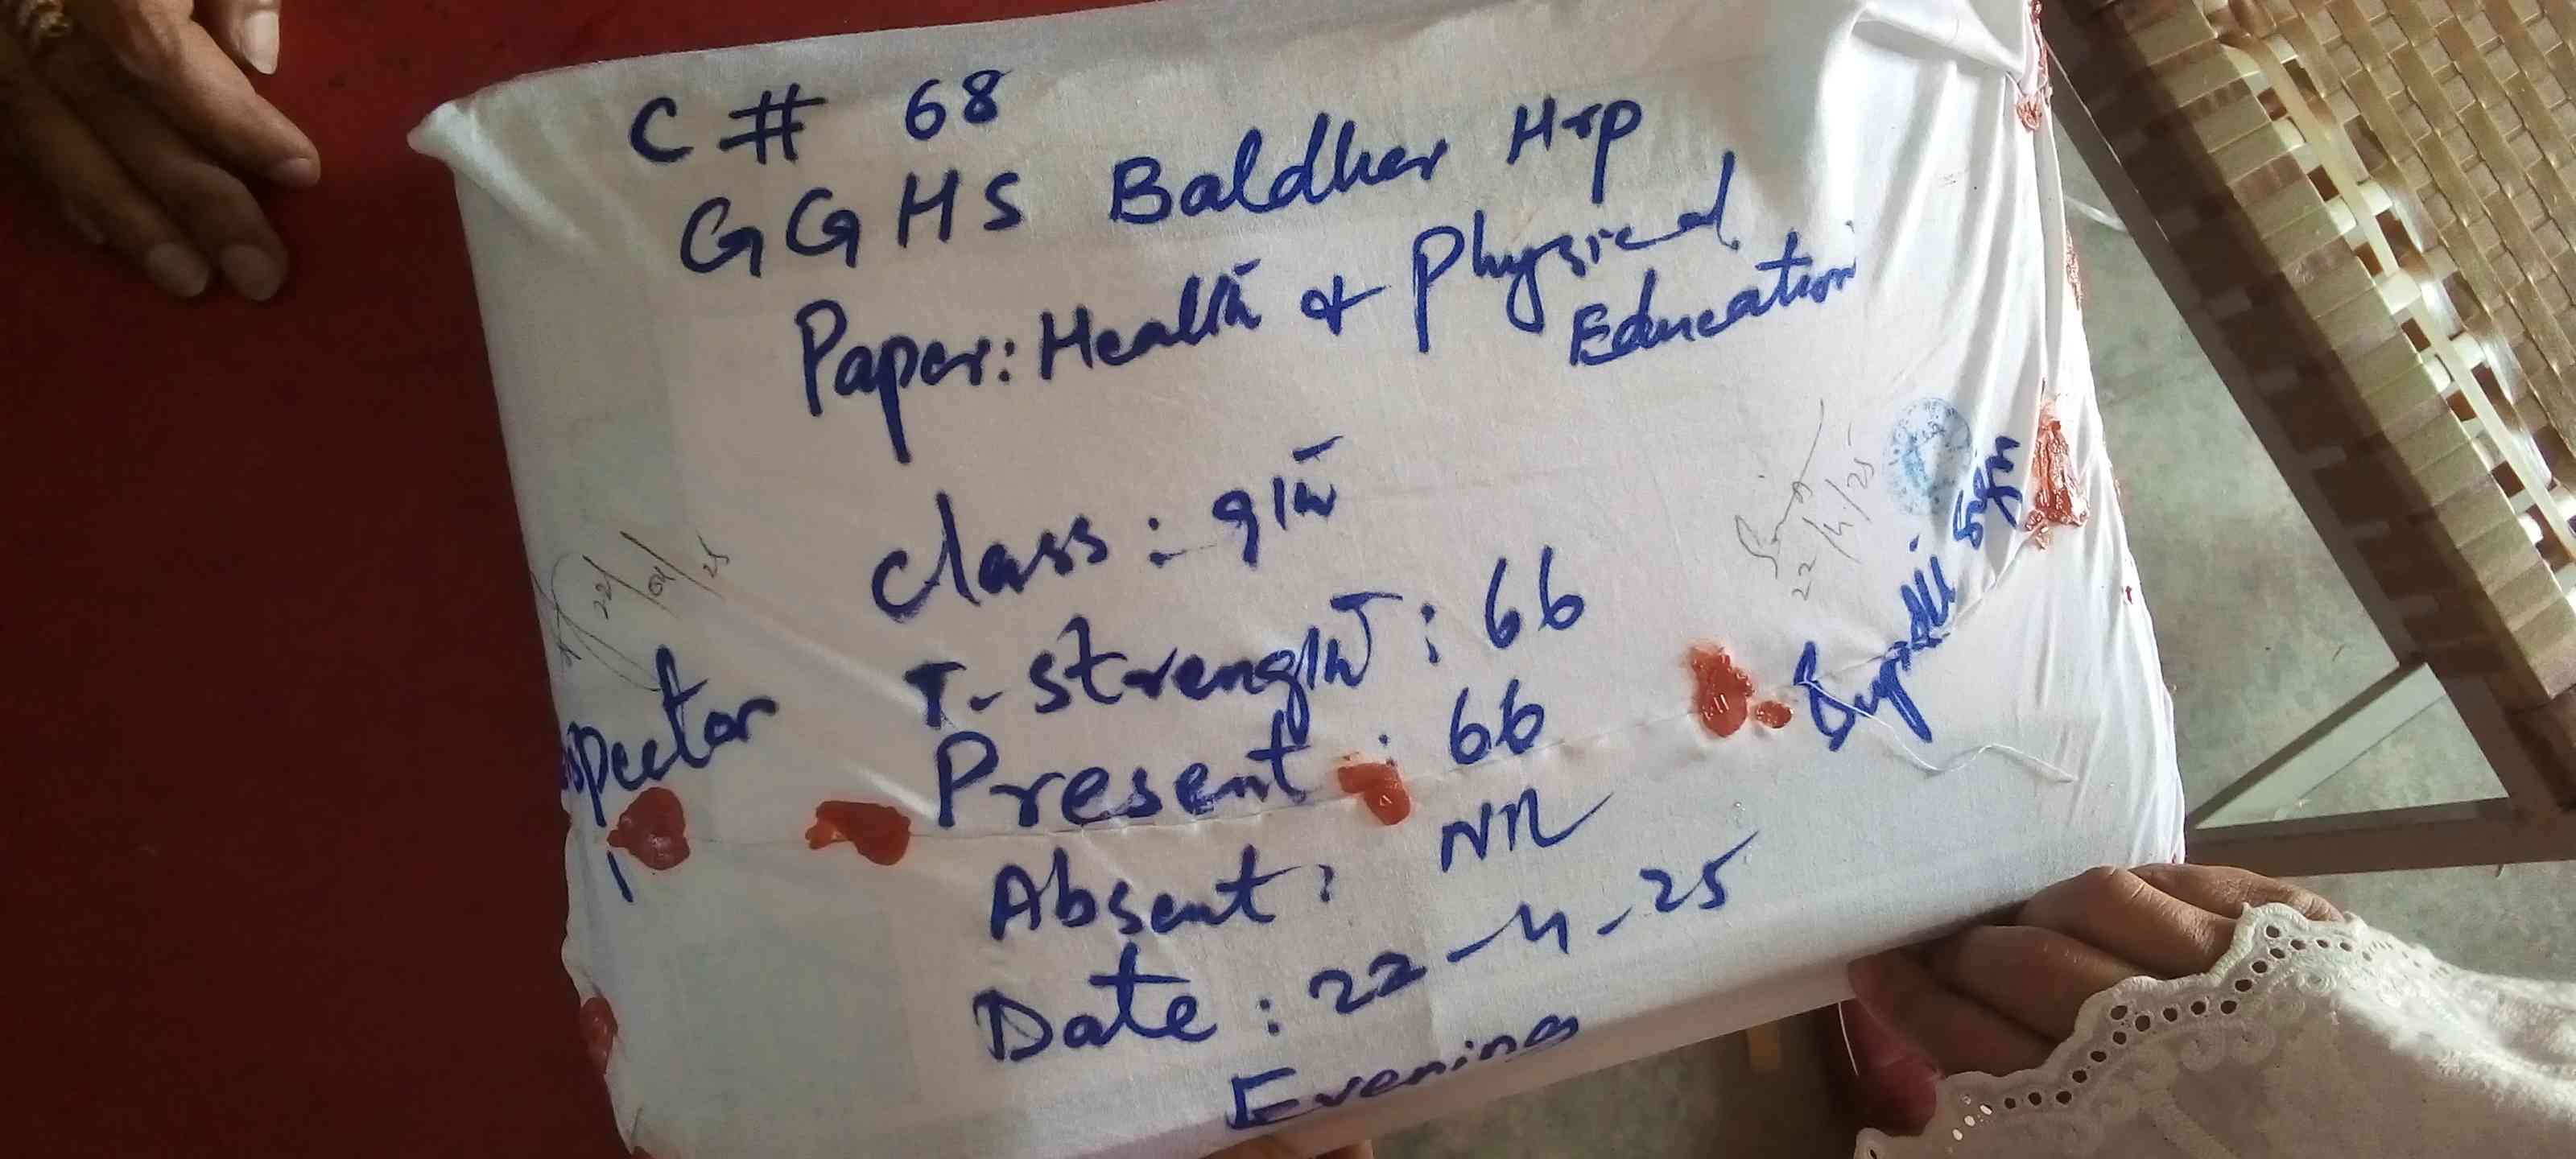 C # 68
GGHS Baldher Hrp
Paper: Health & Physical
Education
Class: 9th
T-Strength: 66
Present: 66
Absent: Nil
Date: 22-4-25
Evening
spector
22/04/25
22/4/25
Supdtt Sign